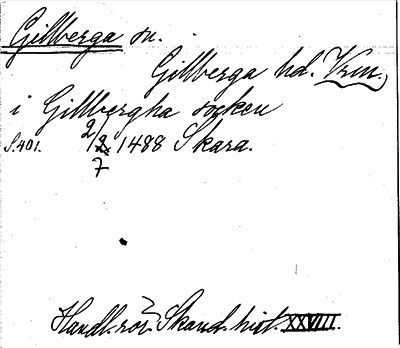 Gillberga sn.
Gillberga hd. Vrm.
i Gillbergha socken
S. 401. 2/7 1488 Skara.
Handl. rör. Skand. hist. XXVIII.